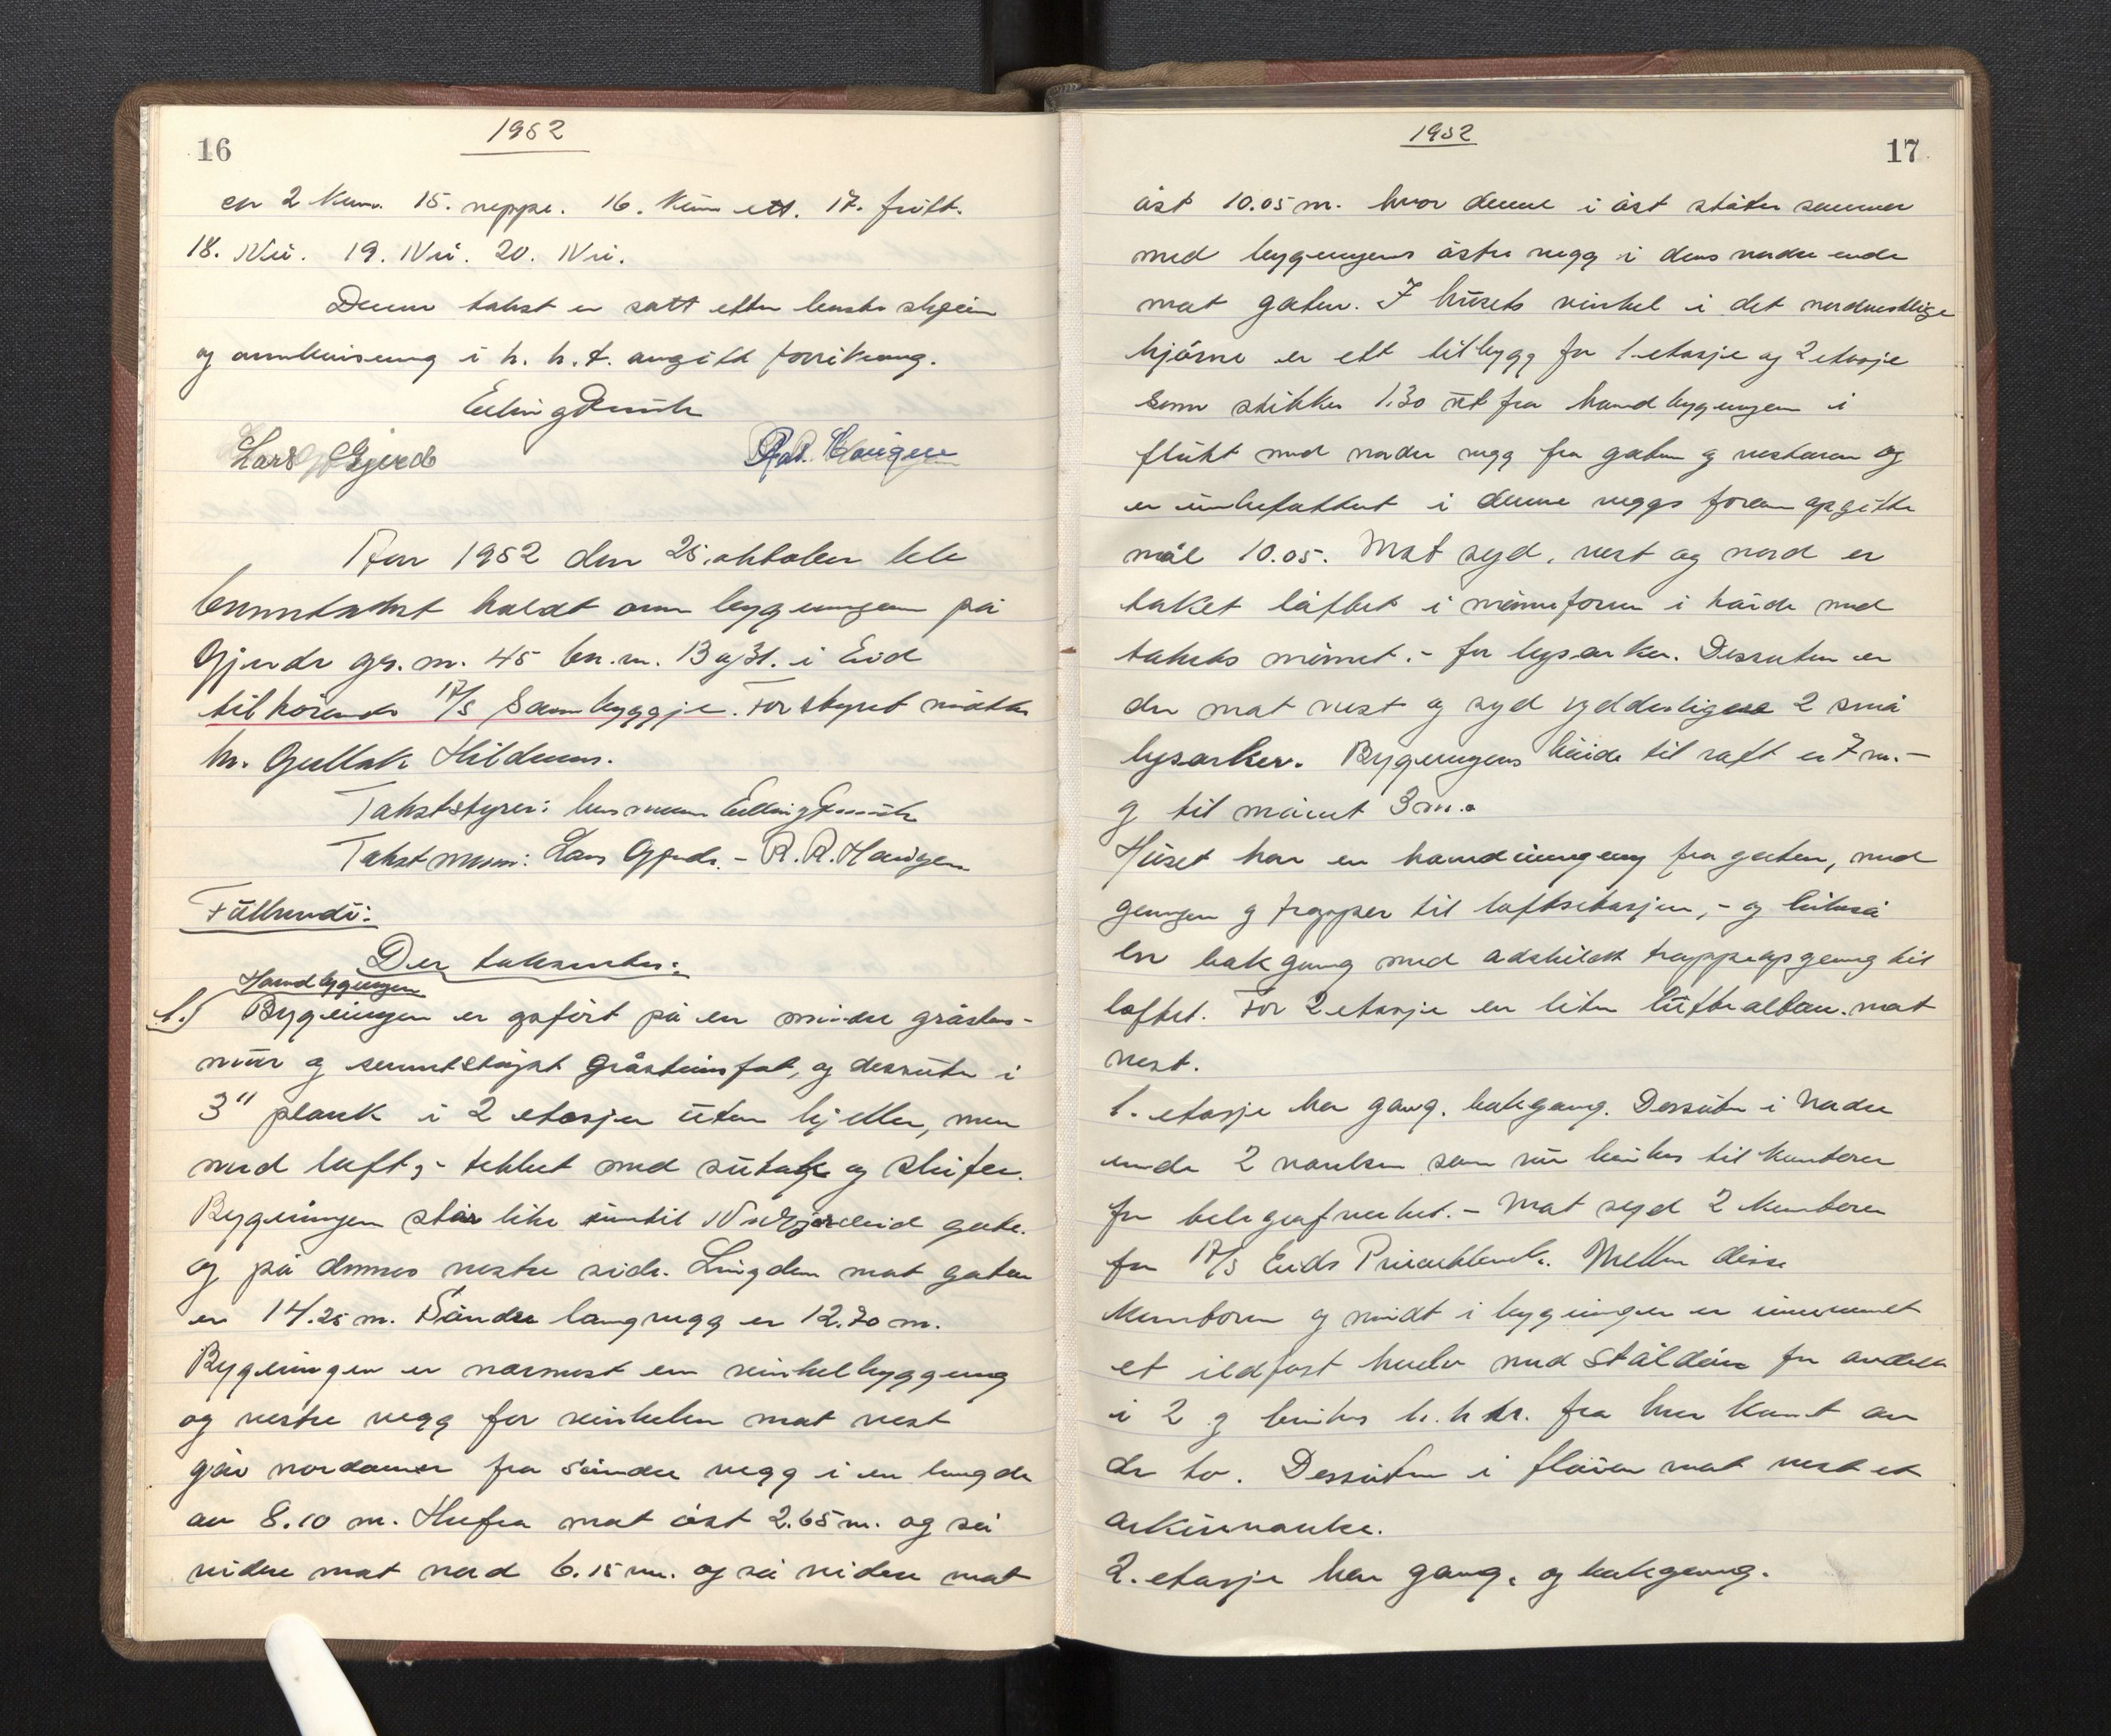 16
1952
en 2 kum. 15. neppe. 16. kum ett. 17. fritt.
18. Nei. 19. Nei. 20. Nei.
Denne takst er satt etter beste skjön
og overbevisning i h. h. t. avgitt forsikring.
Erling
Lars Gjerde R. R. Haugen
Aar 1952 den 25. oktober ble
branntakst holdt over bygningen på
Gjerde gr. nr. 45 br. nr. 13 og 31. i Eid
tilhörende A/S Sambyggje. For styret mötte
hr. Gullak Hildeness.
Takststyrer: lensmann Erling
Takstmenn: Lars Gjerde. - R. R. Haugen
Fullmende:
Der takseres:
Hovedbygningen
1.) Bygningen er opfört på en mindre gråsten-
mur og sementstöpt gråsteinsfot, og dessuten i
3" plank i 2 etasjer uten kjeller, men
med loft, - tekket med sutak og skifer.
Bygningen står like inntil Nordfjordeid gate.
og på dennes vestre side. Lengden mot gaten
er 14.25 m. Söndre langvegg er 12.70 m.
Bygningen er nærmest en vinkelbygging
og vestre vegg for vinkelen mot vest
går nordover fra söndre vegg i en lengde
av 8.10 m. Herfra mot öst 2.65 m. og så
videre mot nord 6.15 m. og så videre mot
17
1952
öst 10.05 m. hvor denne i öst stöter sammen
med bygningens östre vegg i dens nordre ende
mot gaten. I husets vinkel i det nordvestlige
hjörne er ett tilbygg for 1. etasje og 2 etasje
som stikker 1.30 ut fra hovedbygningen i
flukt med nordre vegg fra gaten og vestover og
er innbefattet i denne veggs foran opgitte
mål 10.05. Mot syd, vest og nord er
taket löftet i möneform i höide med
takets mönet. - for lysarker. Dessuten er
der mot vest og syd ydderligere 2 små
lysarker. Bygningens höide til raft er 7 m. -
og til mönet 3 m.
Huset har en hovedinngang fra gaten, med
ganger og trapper til loftsetasjen, - og likeså
en bakgang med adskildt trappeopgang til
loftet. For 2 etasje en liten luftealtan. mot
vest.
1. etasje har gang. bakgang. Dessuten i nordre
ende 2 værelser som nu brukes til kontorer
for telegrafverket. - Mot syd 2 kontorer
for A/S Eids Privatbank. Mellem disse
kontorer og midt i bygningen er innvunnet
et ildfast hvelv med ståldör for avdelt
i 2 og brukes h. h. v. fra hver kant av
de to. Dessuten i flöien mot vest et
arkivværelse.
2. etasje har gang, og bakgang.